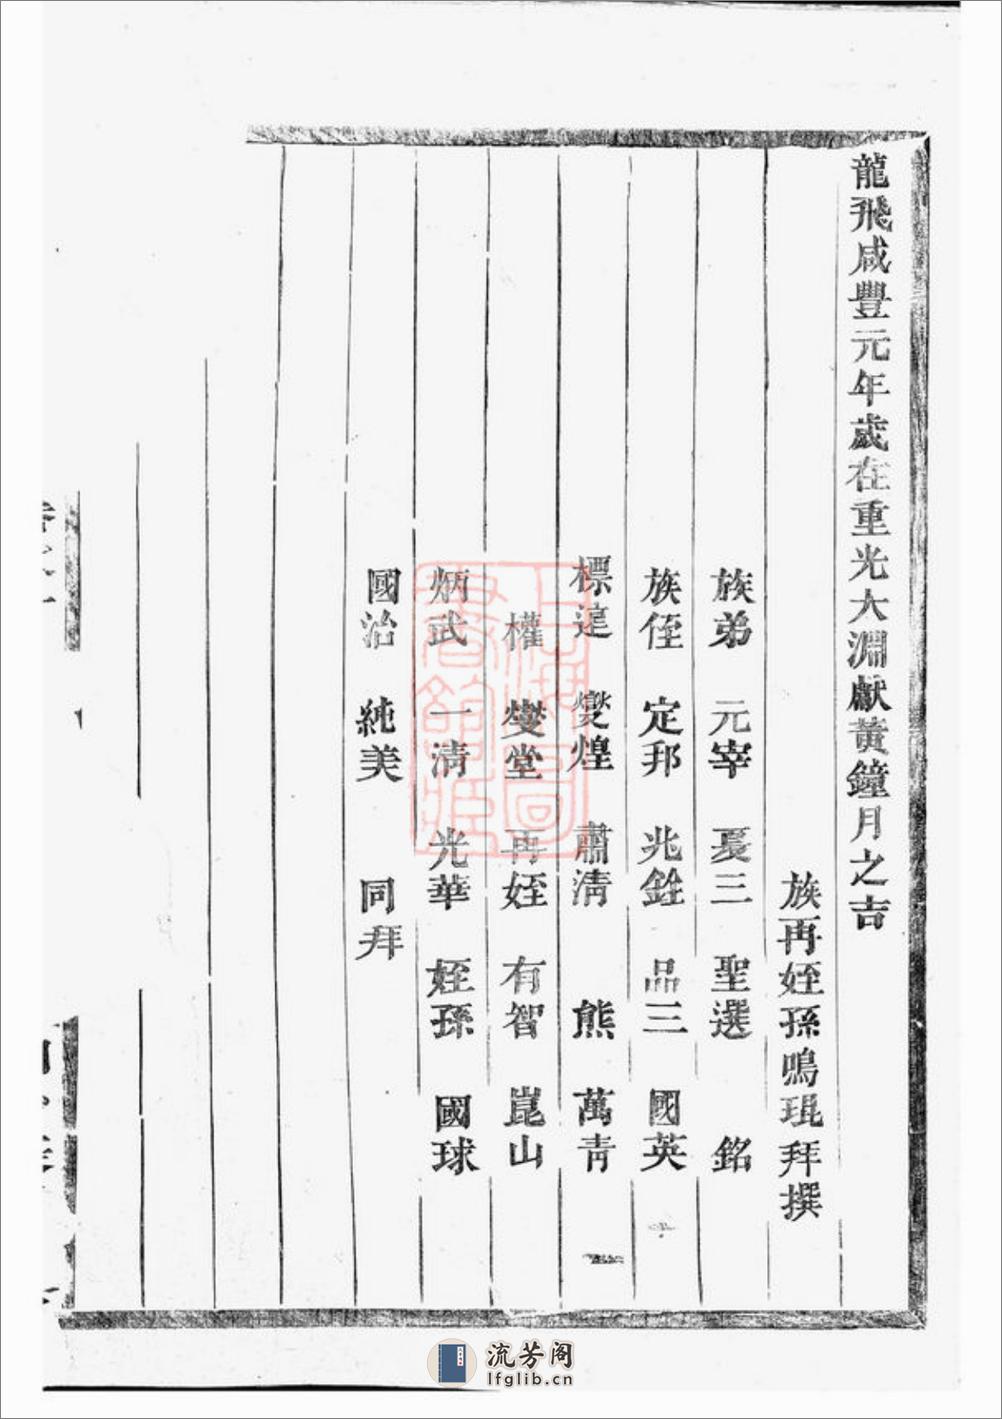 龍飛咸豐元年歲在重光大淵獻黃鐘月之吉
族再姪孫鳴琨拜撰
族弟 元宰 憂三 聖選 銘
族侄 定邦 兆銓 品三 國英
標達 燮煌 肅清 熊 萬青
權 燮堂 再姪 有智 崑山
炳武 一清 光華 姪孫 國球
國治 純美 同拜
上海圖書館藏
流芳阁
lfglib.cn